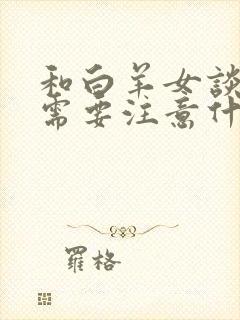 和白羊女談
需要注意什
羅格